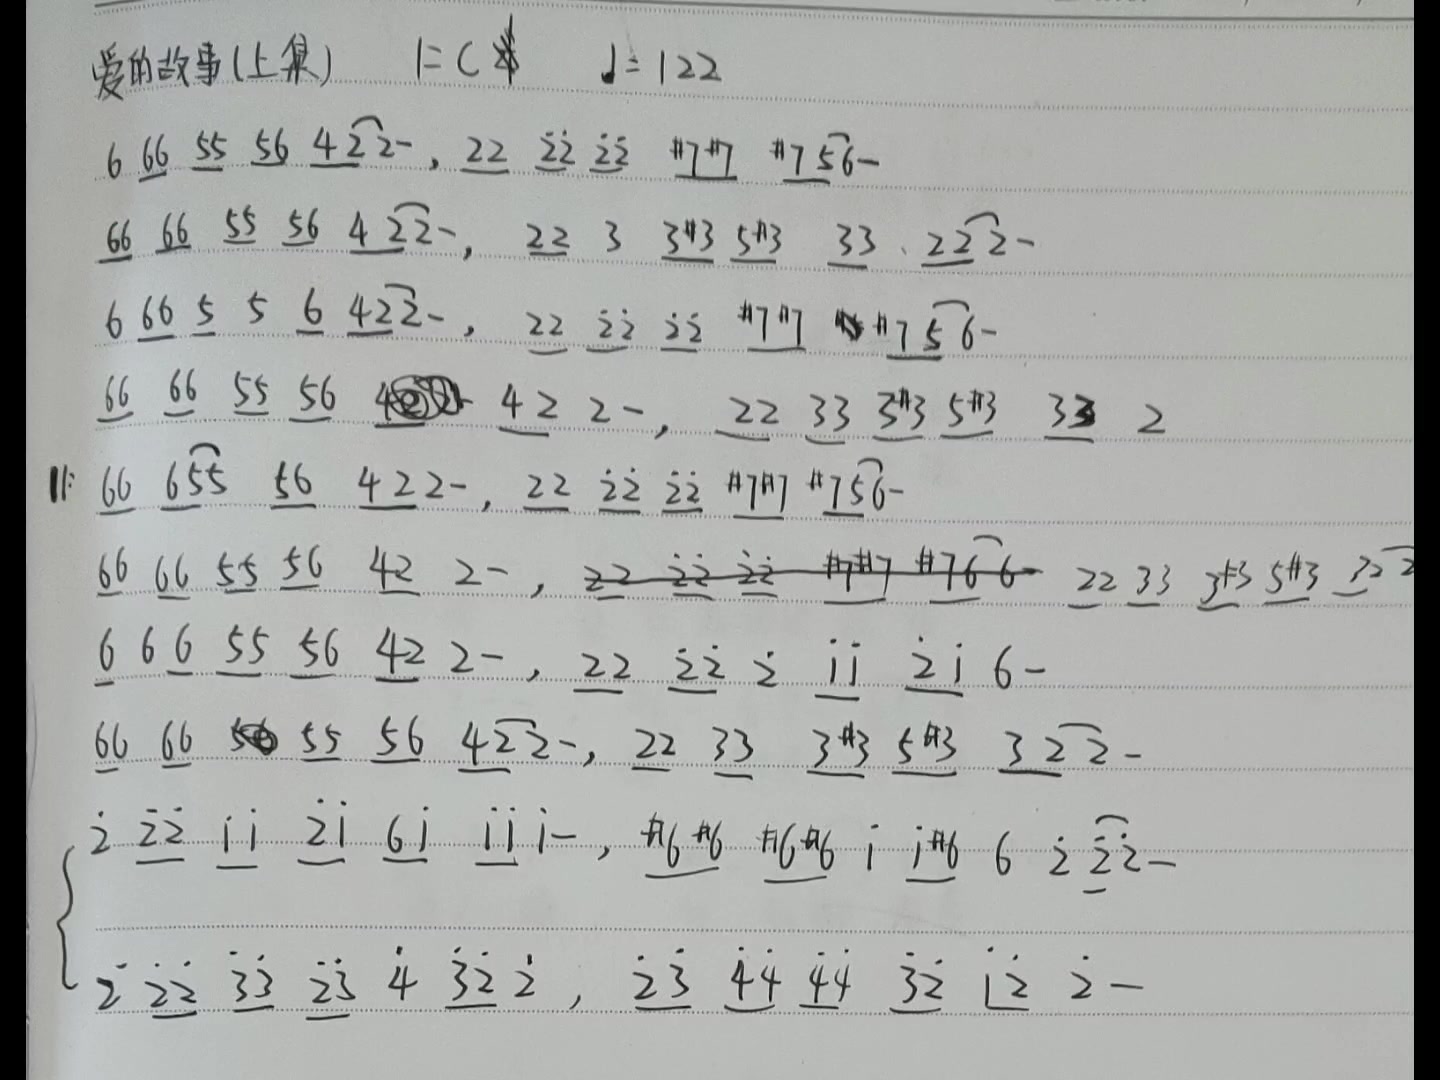 爱的故事(上集) 1=C ♩=122
6 66 55 56 422-, 22 2̇2̇ 2̇2̇ #7#7 #756-
66 66 55 56 422-, 22 3 3#3 5#3 33 . 222-
6 66 5 5 6 422-, 22 2̇2̇ 2̇2̇ #7#7 #756-
66 66 55 56 42 2-, 22 33 3#3 5#3 33 2
‖: 66 655 56 422-, 22 2̇2̇ 2̇2̇ #7#7 #756-
66 66 55 56 42 2-, 22 2̇2̇ 2̇2̇ #7#7 #766- 22 33 3#3 5#3 322
6 6 6 55 56 42 2-, 22 2̇2̇ 2̇ 1̇1̇ 2̇1̇ 6-
66 66 55 56 422-, 22 33 3#3 5#3 322-
2̇ 2̇2̇ 1̇1̇ 2̇1̇ 61̇ 1̇1̇ 1̇-, #6#6 #6#6 1̇ 1̇#6 6 2̇ 2̇2̇-
2̇ 2̇2̇ 3̇3̇ 2̇3̇ 4̇ 3̇2̇ 2̇, 2̇3̇ 4̇4̇ 4̇4̇ 3̇2̇ 1̇2̇ 2̇-